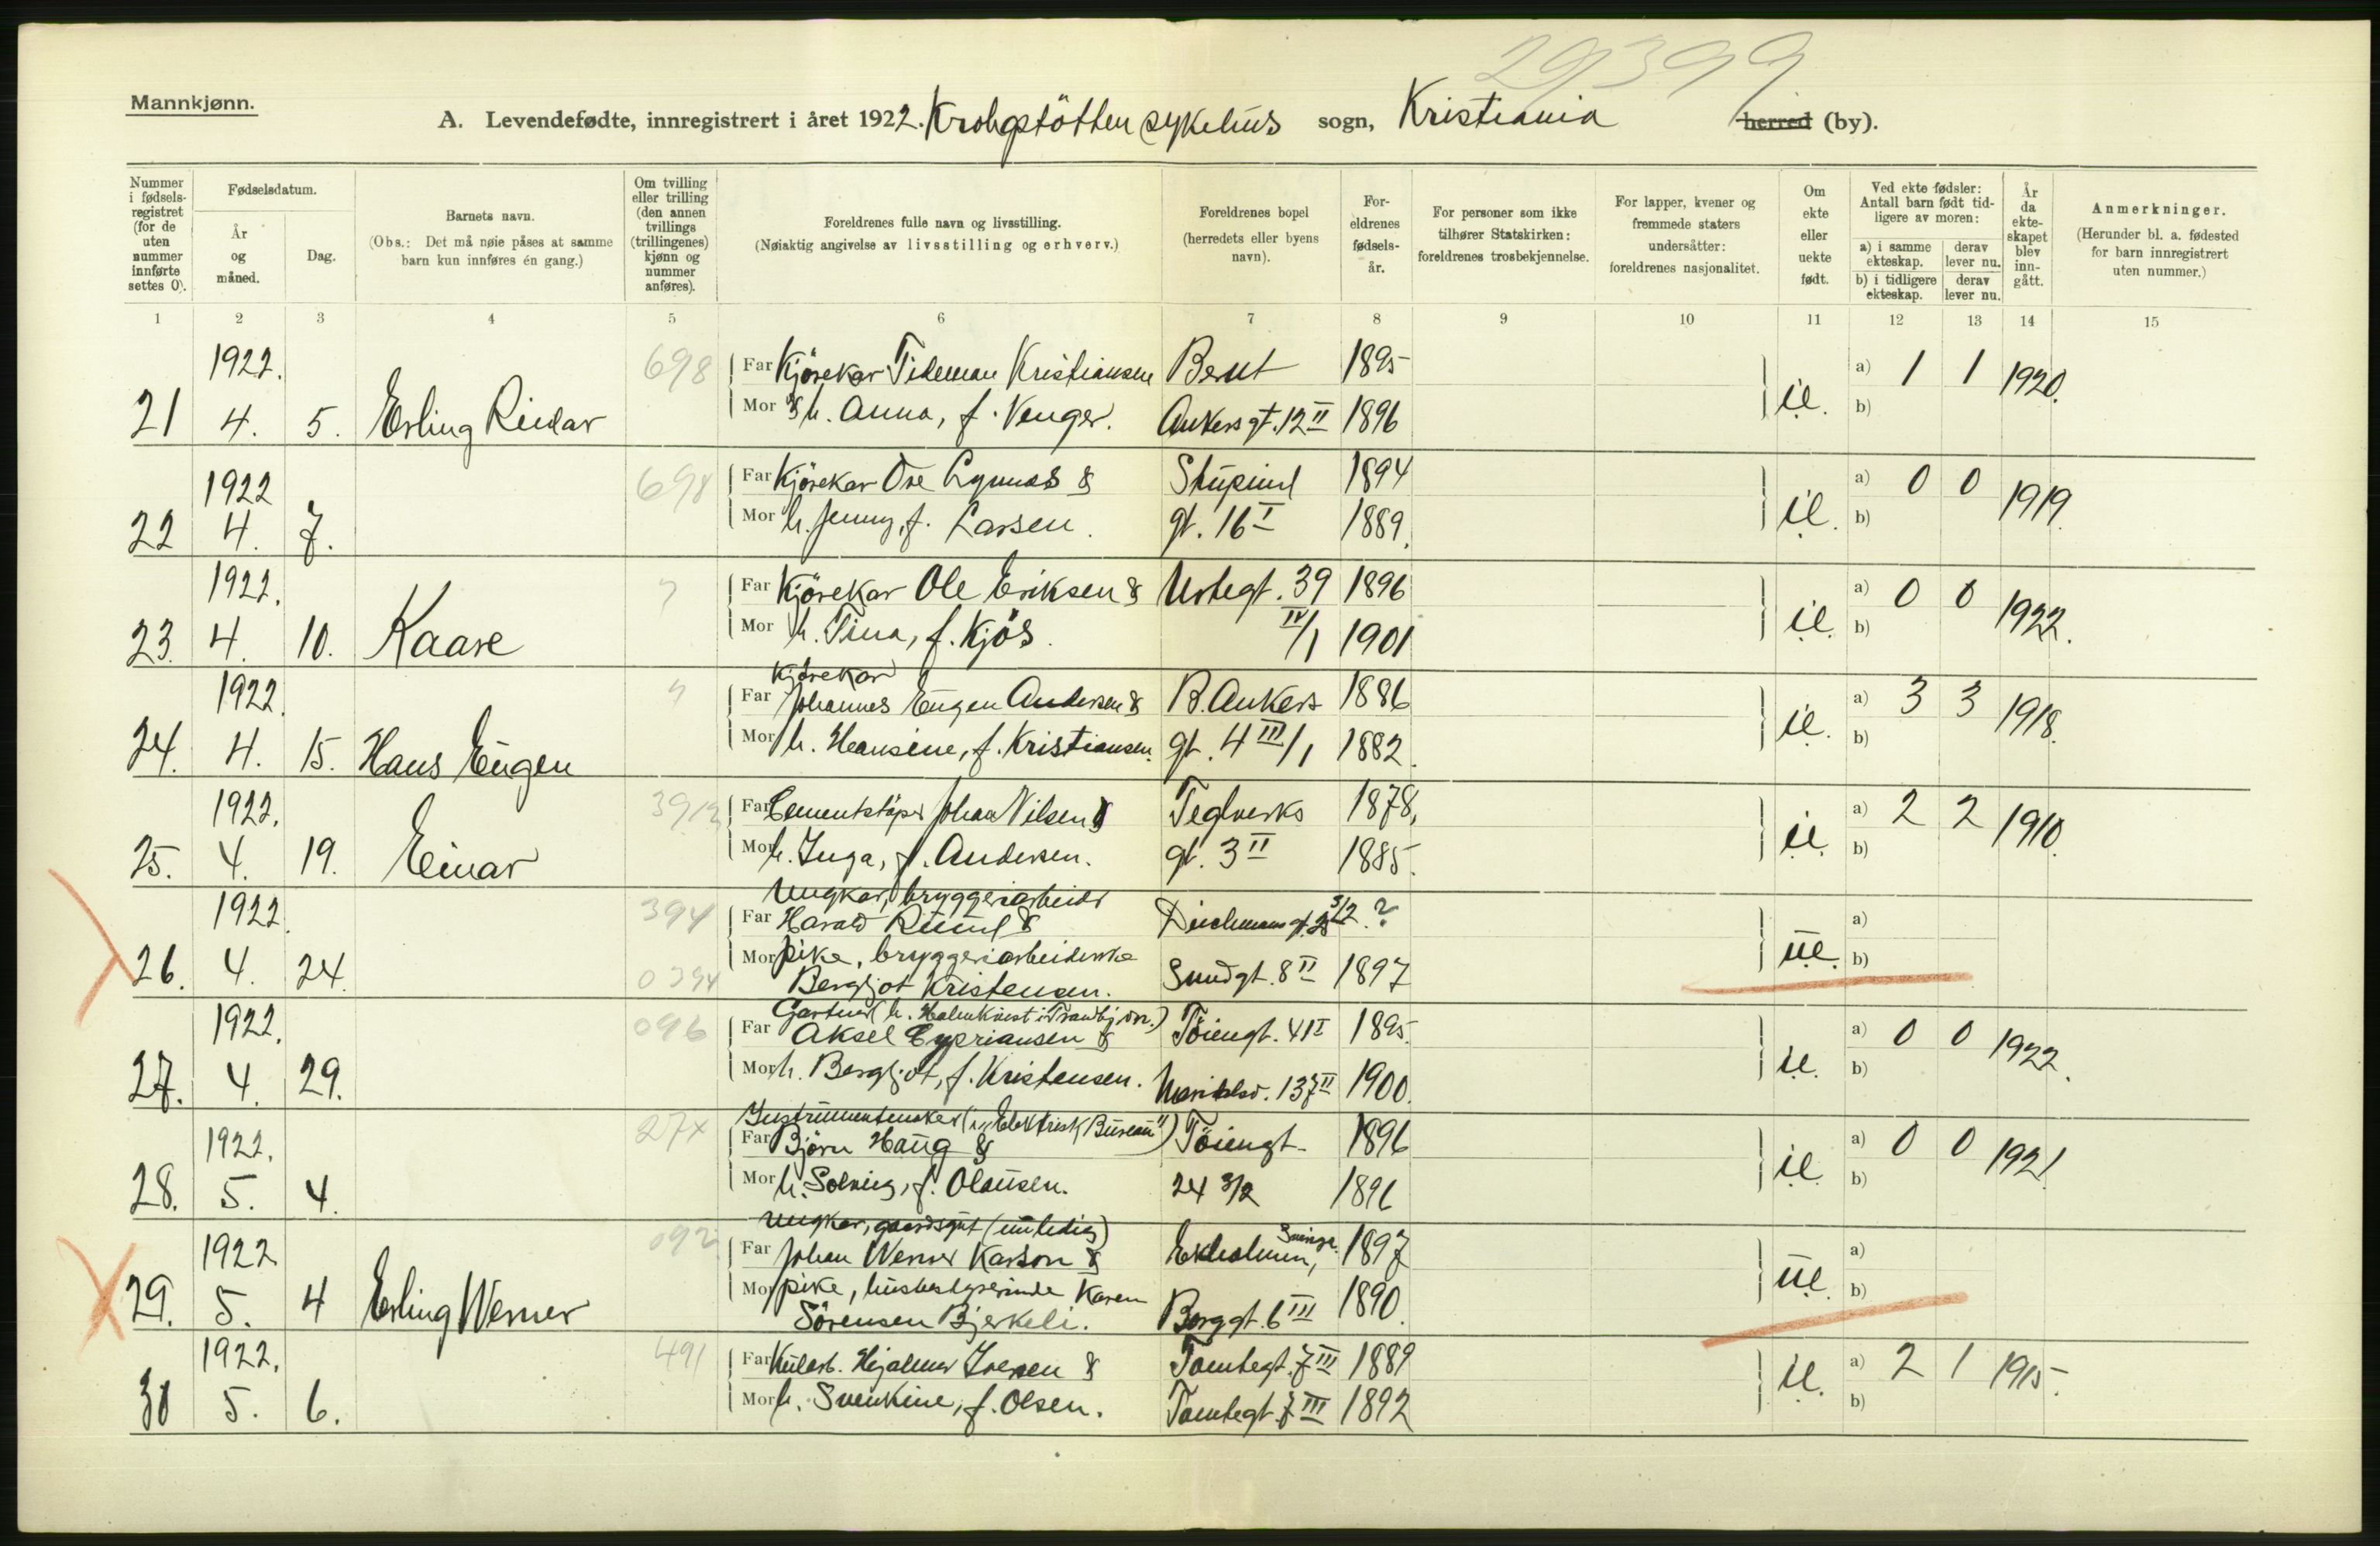 29399
Mannkjønn.
A. Levendefødte, innregistrert i året 1922. Krohgstötten sykehus sogn, Kristiania herred (by).
Nummer i fødselsregistret (for de uten nummer innførte settes 0).
Fødselsdatum.
År og måned.
Dag.
Barnets navn.
(Obs.: Det må nøie påses at samme barn kun innføres én gang.)
Om tvilling eller trilling (den annen tvillings (trillingenes) kjønn og nummer anføres).
Foreldrenes fulle navn og livsstilling.
(Nøiaktig angivelse av livsstilling og erhverv.)
Foreldrenes bopel (herredets eller byens navn).
Foreldrenes fødselsår.
For personer som ikke tilhører Statskirken: foreldrenes trosbekjennelse.
For lapper, kvener og fremmede staters undersåtter: foreldrenes nasjonalitet.
Om ekte eller uekte født.
Ved ekte fødsler: Antall barn født tidligere av moren:
a) i samme ekteskap. derav lever nu.
b) i tidligere ekteskap. derav lever nu.
År da ekteskapet blev inngått.
Anmerkninger.
(Herunder bl. a. fødested for barn innregistrert uten nummer.)
1 2 3 4 5 6 7 8 9 10 11 12 13 14 15
1922. 698 Far Kjörekar Tideman Kristiansen Bernt 1895 a) 1 1 1920.
21 4. 5. Erling Reidar Mor & h. Anna, f. Venger. Ankersgt. 12 II 1896 ie. b)
1922 698 Far Kjörekar Ove Lynnes & Stupinl 1894 a) 0 0 1919.
22 4. 7. Mor h. Jenny, f. Larsen. gt. 16 I 1889. ie. b)
1922. Far Kjörekar Ole Eriksen & Urtegt. 39 1896 a) 0 0 1922.
23. 4. 10. Kaare Mor h. Tina, f. Kjös. IV/1 1901 ie. b)
Kjörekar
1922. Far Johannes Eugen Andersen & B. Ankers 1886 a) 3 3 1918.
24. 4. 15. Hans Eugen Mor h. Hansine, f. Kristiansen. gt. 4 III/1 1882. ie. b)
1922. Far Cementstöper Johan Nilsen & Teglverks 1878, a) 2 2 1910.
25. 4. 19. Einar Mor h. Inga, f. Andersen. gt. 3 II 1885. ie. b)
Ungkar, bryggeriarbeider
1922. 394 Far Harald Ruud & Deichmans gt. 3/2 ? a)
26. 4. 24. Mor pike, bryggeriarbeiderske ue. b)
0394 Bergljot Kristensen. Sundgt. 8 II 1897
Gartner (h. Holmkvist i Tranbj
1922. 096 Far Aksel Cypriansen & Töiengt. 41 I 1895. a) 0 0 1922.
27. 4. 29. Mor h. Bergljot, f. Kristensen. Maridalsv. 137 II 1900. ie. b)
Instrumentmaker (i "Elektrisk Bureau")
1922. 27x Far Björn Haug & Töiengt. 1896 a) 0 0 1921.
28. 5. 4. Mor h. Solveig, f. Olausen. 24 3/2 1896 ie. b)
Ungkar, gaardsgut
1922 092 Far Johan Werner Karson & Ekholmen, Sverige. 1897 a)
29. 5. 4 Erling Werner Mor pike, husbestyrerinde Karen ue. b)
Sörensen Bjerkeli. Borggt. 6 III 1890.
1922. 491 Far Kularb. Hjalmar Iversen & Tomtegt. 7 III 1889 a) 2 1 1915.
30 5. 6. Mor h. Svenkine, f. Olsen. Tomtegt. 7 III 1892 ie. b)